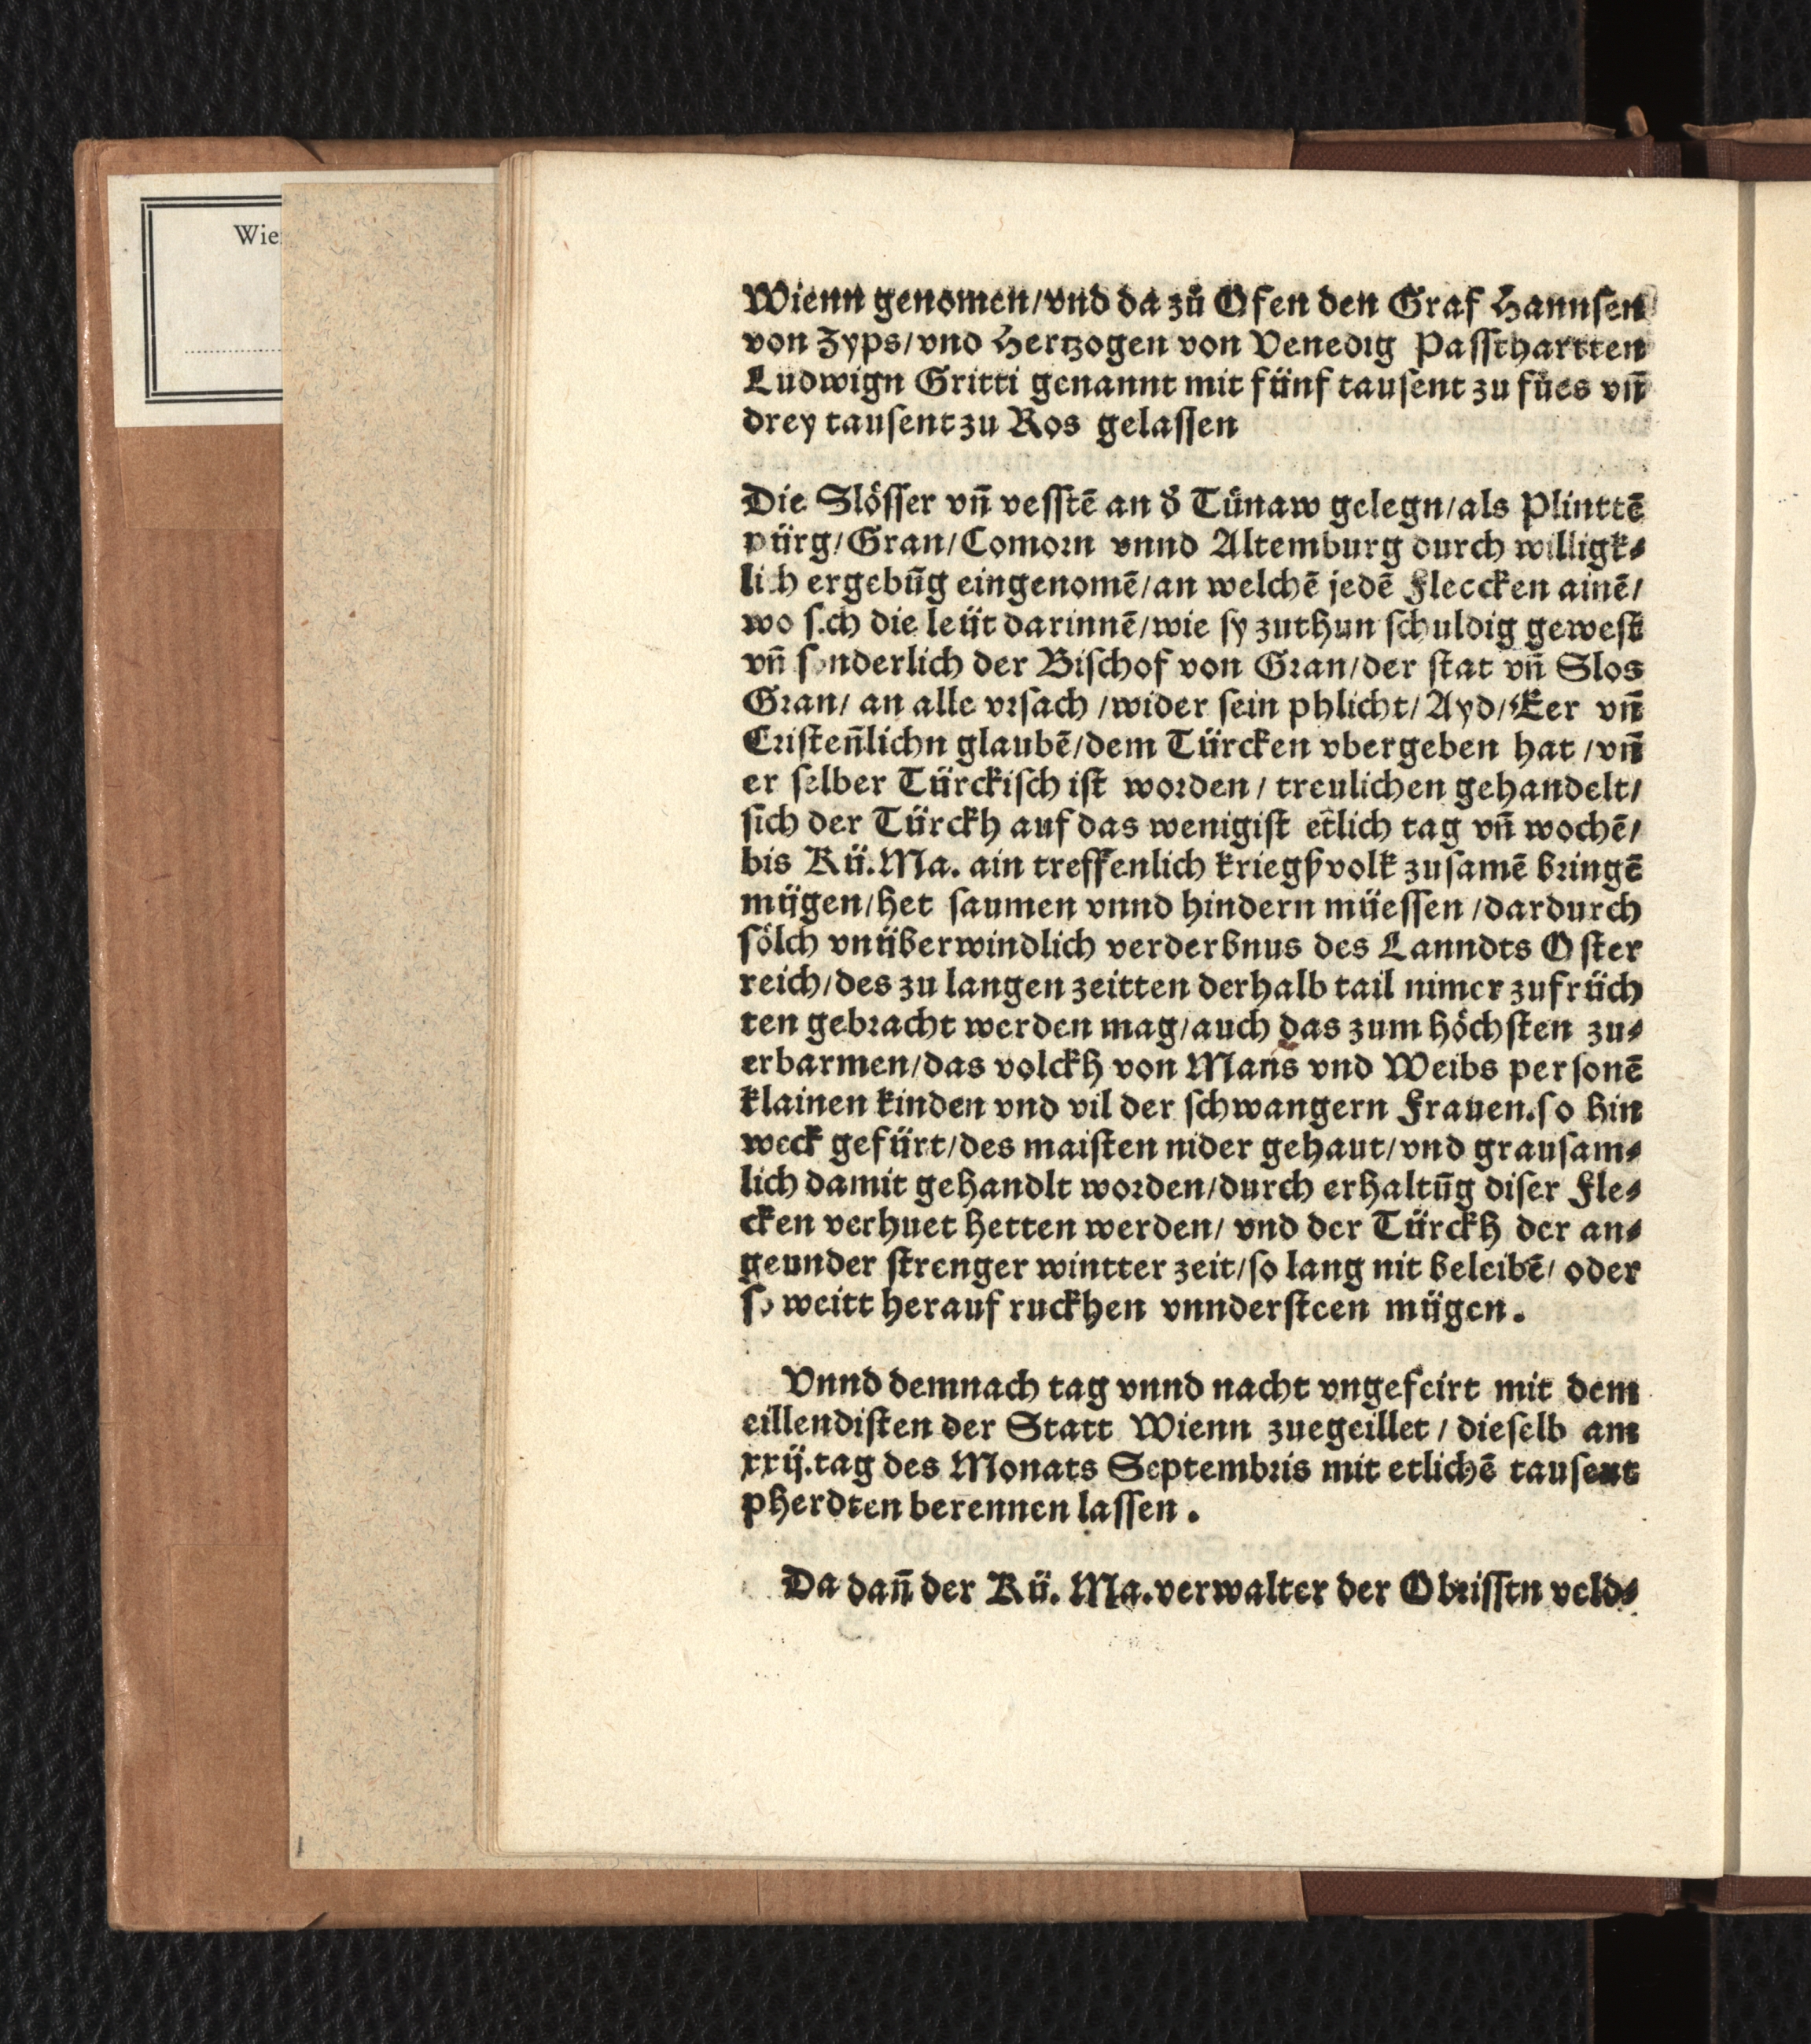 Wie
Wienn genomen/vnd da zů Ofen den Graf Hannsen
von Zyps/vnd Hertzogen von Venedig Passthartten
Ludwign Gritti genannt mit fünf tausent zu fües vn̄
drey tausent zu Ros gelassen
Die Slösser vn̄ vesstē an d̕ Tünaw gelegn/als Plinttē
pürg/Gran/Comorn vnnd Altemburg durch willigk⸗
lich ergebūg eingenomē/an welchē jedē Fleccken ainē/
wo sich die leüt darinnē/wie sy zuthun schuldig gewest
vn̄ sonderlich der Bischof von Gran/der stat vn̄ Slos
Gran/ an alle vrsach /wider sein phlicht/Ayd/Eer vn̄
Cristen̄lichn glaubē/dem Türcken vbergeben hat /vn̄
er selber Türckisch ist worden/ treulichen gehandelt/
sich der Türckh auf das wenigist etlich tag vn̄ wochē/
bis Kü.Ma. ain treffenlich kriegßvolk zusamē bringē
mügen/het saumen vnnd hindern müessen /dardurch
sölch vnüberwindlich verderbnus des Lanndts Oster
reich/des zu langen zeitten derhalb tail nimer zufrüch
ten gebracht werden mag/auch das zum höchsten zu⸗
erbarmen/das volckh von Mans vnd Weibs personē
klainen kinden vnd vil der schwangern Frauen.so hin
weck gefürt/des maisten nider gehaut/vnd grausam⸗
lich damit gehandlt worden/durch erhaltūg diser Fle⸗
cken verhuet hetten werden/ vnd der Türckh der an⸗
geunder strenger wintter zeit/so lang nit beleibē/ oder
so weitt herauf ruckhen vnndersteen mügen.
Vnnd demnach tag vnnd nacht vngefeirt mit dem
eillendisten der Statt Wienn zuegeillet / dieselb am
xxij.tag des Monats Septembris mit etlichē tausent
pherdten berennen lassen.
Da dan̄ der Kü. Ma.verwalter der Obrisstn veld⸗